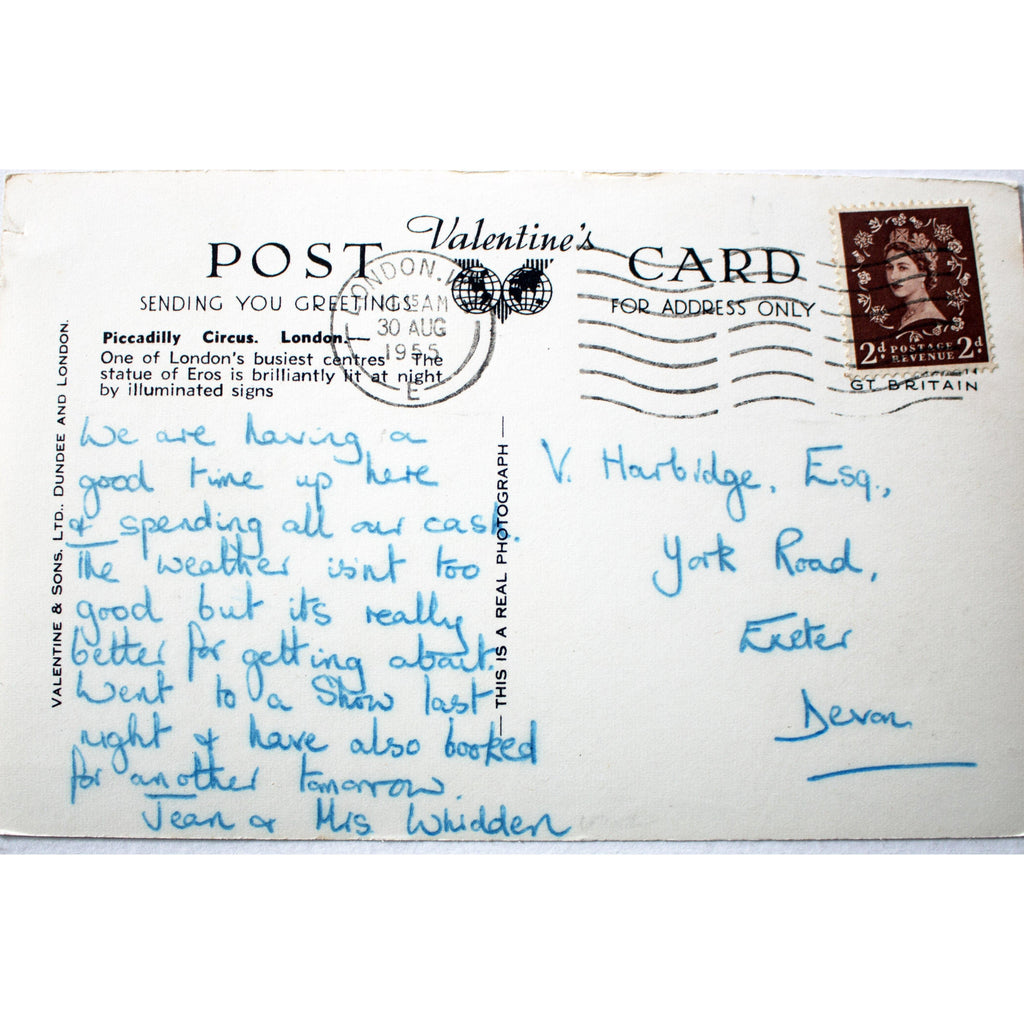 Valentine's
POST CARD
SENDING YOU GREETINGS
FOR ADDRESS ONLY
Piccadilly Circus. London.—
One of London's busiest centres The
statue of Eros is brilliantly lit at night
by illuminated signs
LONDON.
15 AM
30 AUG
1955
E
2d POSTAGE REVENUE 2d
GT BRITAIN
VALENTINE & SONS, LTD., DUNDEE AND LONDON.
— THIS IS A REAL PHOTOGRAPH —
We are having a
good time up here
& spending all our cash.
The weather isnt too
good but its really
better for getting about.
Went to a Show last
night & have also booked
for another tomorrow.
Jean & Mrs Whidden
V. Harbidge, Esq.,
York Road,
Exeter
Devon